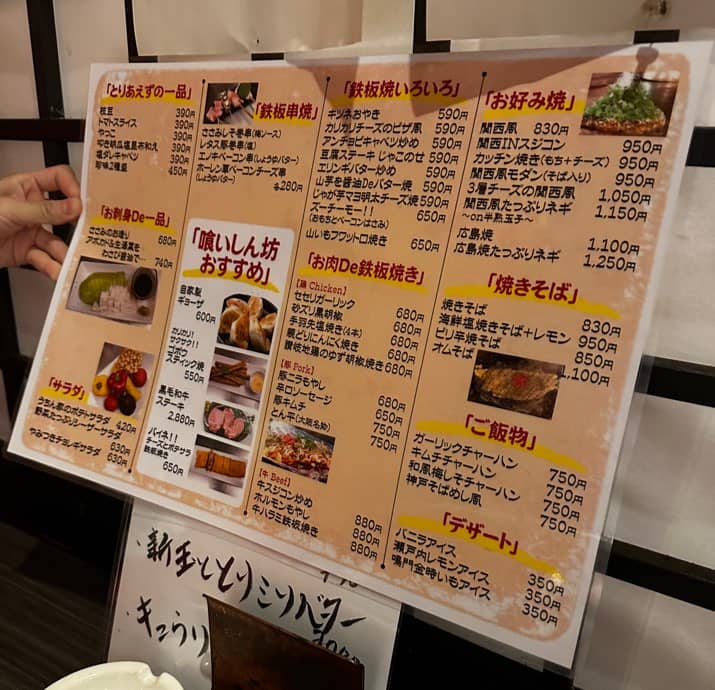 「とりあえずの一品」
枝豆 390円
トマトスライス 390円
やっこ 390円
叩き胡瓜塩昆布和え 390円
塩ダレキャベツ 390円
珍味三種盛 450円
「お刺身De一品」
ささみのお造り 680円
アボカド&生湯葉を
わさび醤油で… 740円
「サラダ」
うちん家のポテトサラダ 420円
野菜たっぷりシーザーサラダ 630円
やみつきチョレギサラダ 630円
「鉄板串焼」
ささみしそ巻串(梅ソース)
レタス豚巻串(塩)
エノキベーコン串(しょうゆバター)
ホーレン草ベーコンチーズ串
(しょうゆバター)
各280円
「喰いしん坊
おすすめ」
自家製
ギョーザ
600円
カリカリ!
サクサク!!
ゴボウ
スティック焼
550円
黒毛和牛
ステーキ
2,880円
バイネ!!
チーズとポテサラ
鉄板焼き
650円
「鉄板焼いろいろ」
キツネおやき 590円
カリカリチーズのピザ風 590円
アンチョビキャベツ炒め 590円
豆腐ステーキ じゃこのせ 590円
エリンギバター炒め 590円
山芋を醤油Deバター焼 590円
じゃが芋マヨ明太チーズ焼 590円
ズーチーモー!! 650円
(おもちとベーコンはさみ)
山いもフワット口焼き 650円
「お肉De鉄板焼き」
【鶏 Chicken】
セセリガーリック 680円
砂ズリ黒胡椒 680円
手羽先塩焼き(4本) 680円
親どりにんにく焼き 680円
讃岐地鶏のゆず胡椒焼き 680円
【豚 Pork】
豚ニラもやし 680円
辛口ソーセージ 650円
豚キムチ 750円
とん平(大阪名物) 750円
【牛 Beef】
牛スジコン炒め 880円
ホルモンもやし 880円
牛ハラミ鉄板焼き 880円
「お好み焼」
関西風 830円
関西INスジコン 950円
カッチン焼き(もち+チーズ) 950円
関西風モダン(そば入り) 950円
3層チーズの関西風 1,050円
関西風たっぷりネギ 1,150円
〜on半熟玉子〜
広島焼 1,100円
広島焼たっぷりネギ 1,250円
「焼きそば」
焼きそば 830円
海鮮塩焼きそば+レモン 950円
ピリ辛焼きそば 850円
オムそば 1,100円
「ご飯物」
ガーリックチャーハン 750円
キムチチャーハン 750円
和風梅しそチャーハン 750円
神戸そばめし風 750円
「デザート」
バニラアイス 350円
瀬戸内レモンアイス 350円
鳴門金時いもアイス 350円
・新玉
・きゅうり